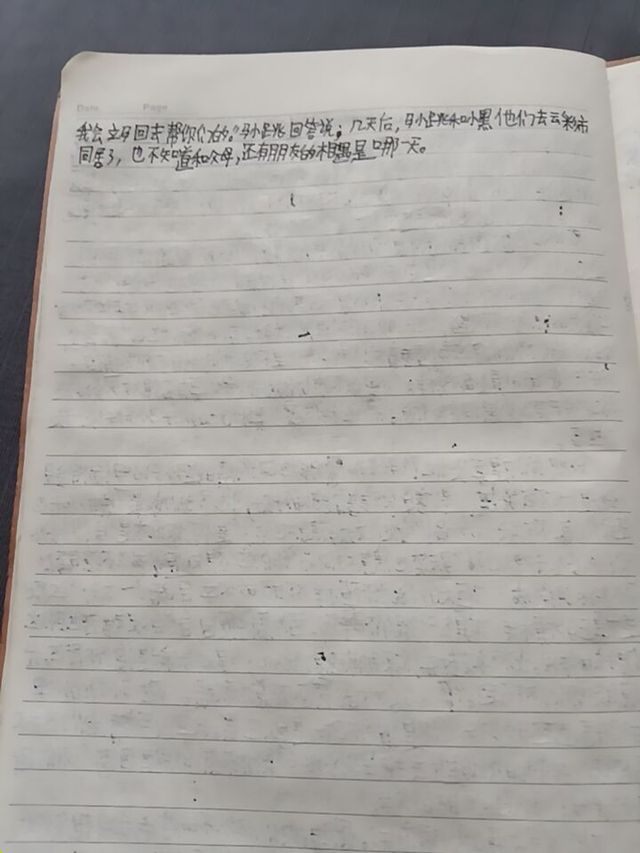 Date Page
我会立马回来帮你们的。"马小跳回答说；几天后，马小跳和小黑他们去云彩市
同居了，也不知道和父母，还有朋友的相遇是哪一天。